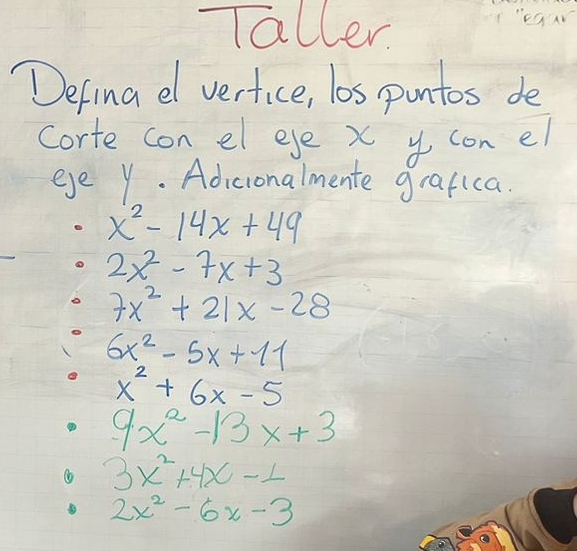 Taller.
Defina el vertice, los puntos de
corte con el eje x y con el
eje y. Adicionalmente grafica.
• x² - 14x + 49
• 2x² - 7x + 3
• 7x² + 21x - 28
• 6x² - 5x + 11
• x² + 6x - 5
• 9x² - 13x + 3
• 3x² + 4x - 1
• 2x² - 6x - 3